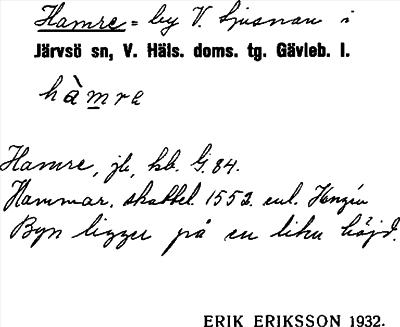 Hamre = by V. Ljusnan i
Järvsö sn, V. Häls. doms. tg. Gävleb. l.
hàmre
Hamre, jb, kb. G. 84.
Hammar. skattel. 1552. enl.
Byn ligger på en liten höjd.
ERIK ERIKSSON 1932.